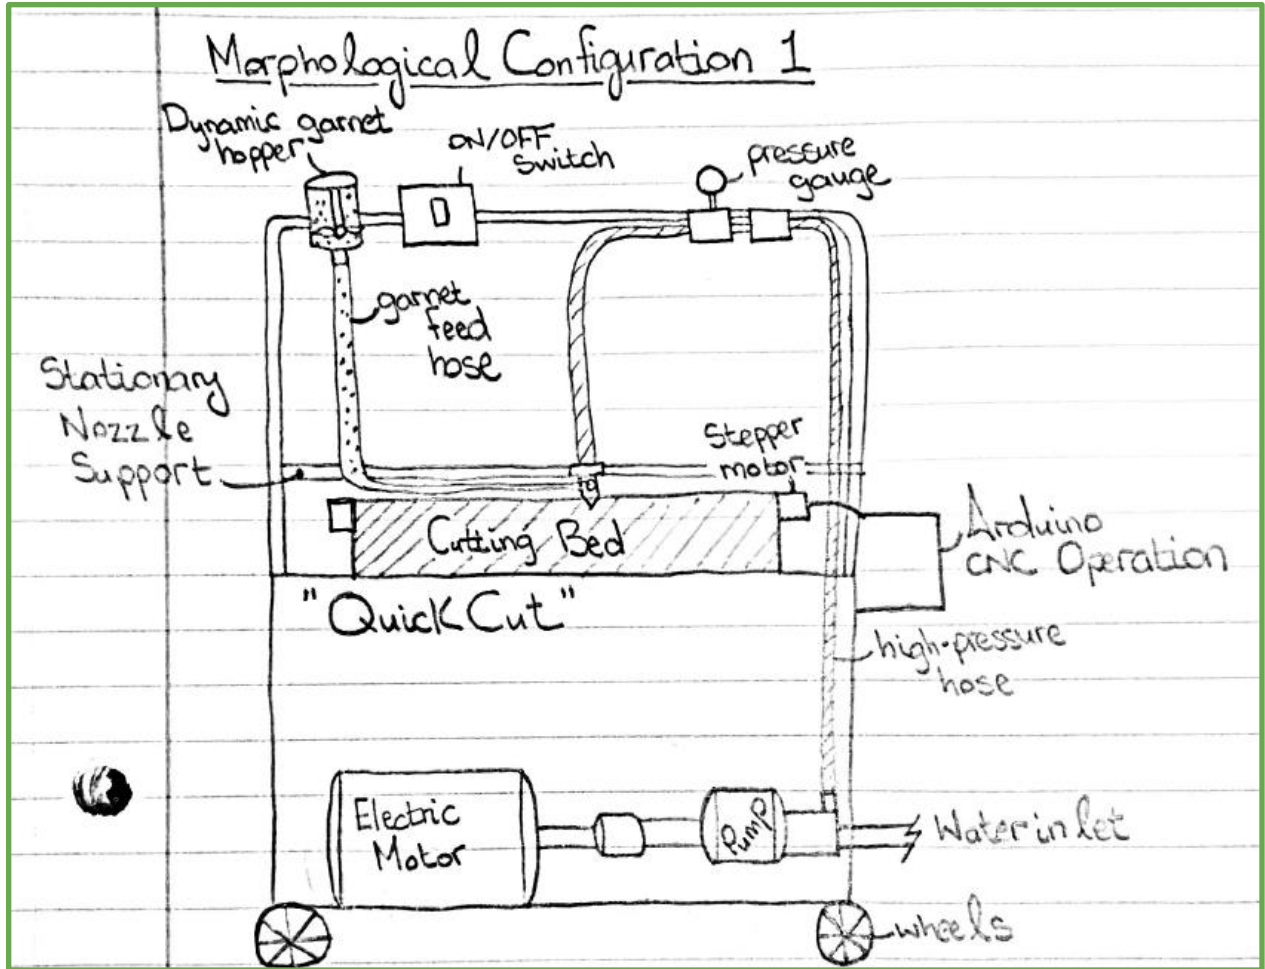 Morphological Configuration 1
Dynamic garnet
hopper
ON/OFF
Switch
pressure
gauge
garnet
feed
hose
Stationary
Nozzle
Support
Stepper
motor
Cutting Bed
Arduino
CNC Operation
"QuickCut"
high-pressure
hose
Electric
Motor
Pump
Water inlet
wheels